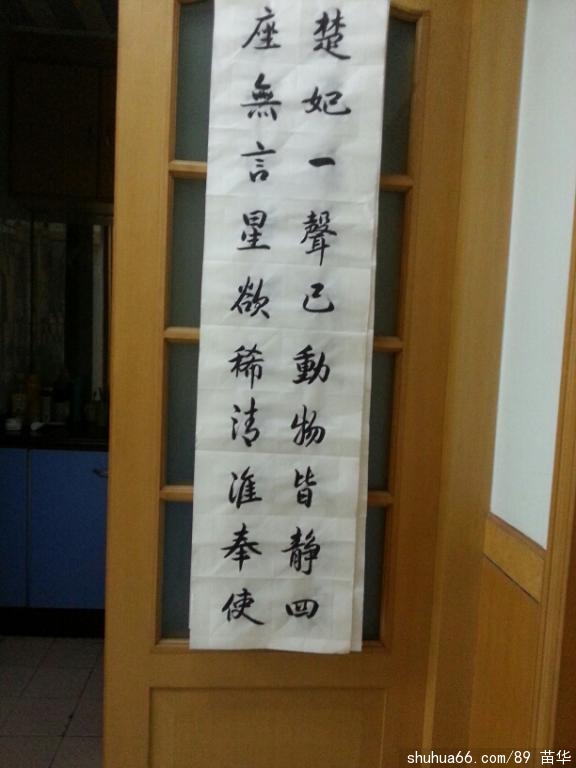 楚妃一聲已動物皆靜四
座無言星欲稀清淮奉使
shuhua66.com/89 苗华